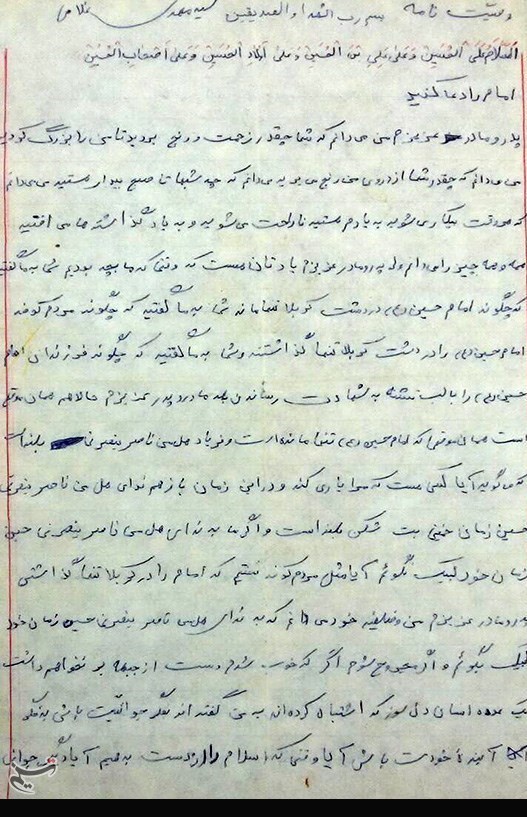 وصیت نامه بسم رب الشهدا و الصدیقین سید مهدی غلامی
السَّلامُ عَلَی الحُسَین وَ عَلی عَلِی بنِ الحُسَین وَ عَلی اَولاد الحُسَین وَ عَلی اَصحابِ الحُسَین
امام را دعا کنید
پدر و مادر عزیزم من می دانم که شما چقدر زحمت و رنج بردید تا من را بزرگ کردید
من می دانم که چقدر شما از دوری من رنج می برید می دانم که چه شبها تا صبح بیدار هستید می دانم
که هر وقت بیکار می شوید به یاد من هستید ناراحت می شوید و به یاد گذشته ها می افتید
همه و همه چیز را می دانم ولی پدر و مادر عزیزم یادتان هست که وقتی که ما بچه بودیم شما به ما گفتید
که چگونه امام حسین (ع) در دشت کربلا تنها ماند شما به ما گفتید که چگونه مردم کوفه
امام حسین (ع) را در دشت کربلا تنها گذاشتند و شما به ما گفتید که چگونه فرزندان امام
حسین (ع) را با لب تشنه به شهادت رساندن بله مادر و پدر عزیزم حالا هم همان موقع
است همان موقعی که امام حسین (ع) تنها مانده است و فریاد هل من ناصر ینصرنی بلند است
که می گوید آیا کسی هست که مرا یاری کند و در این زمان باز هم ندای هل من ناصر ینصرنی
حسین زمان خمینی بت شکن بلند است و اگر ما به ندای هل من ناصر ینصرنی حسین
زمان خود لبیک نگوئیم آیا مثل مردم کوفه نیستیم که امام را در کربلا تنها گذاشتن
پدر و مادر عزیزم من وظیفه خود می دانم که به ندای هل من ناصر ینصرنی حسین زمان خود
لبیک بگویم و اگر مجروح شوم اگر که خوب شدم دست از جبهه بر نخواهم داشت
یک عده انسان دل سوز که اشتباه کرده اند به من گفته اند فکر جوانیت باش به فکر
آینده خودت باش آیا وقتی که اسلام را از دست بدهیم آیا دیگر جوانی